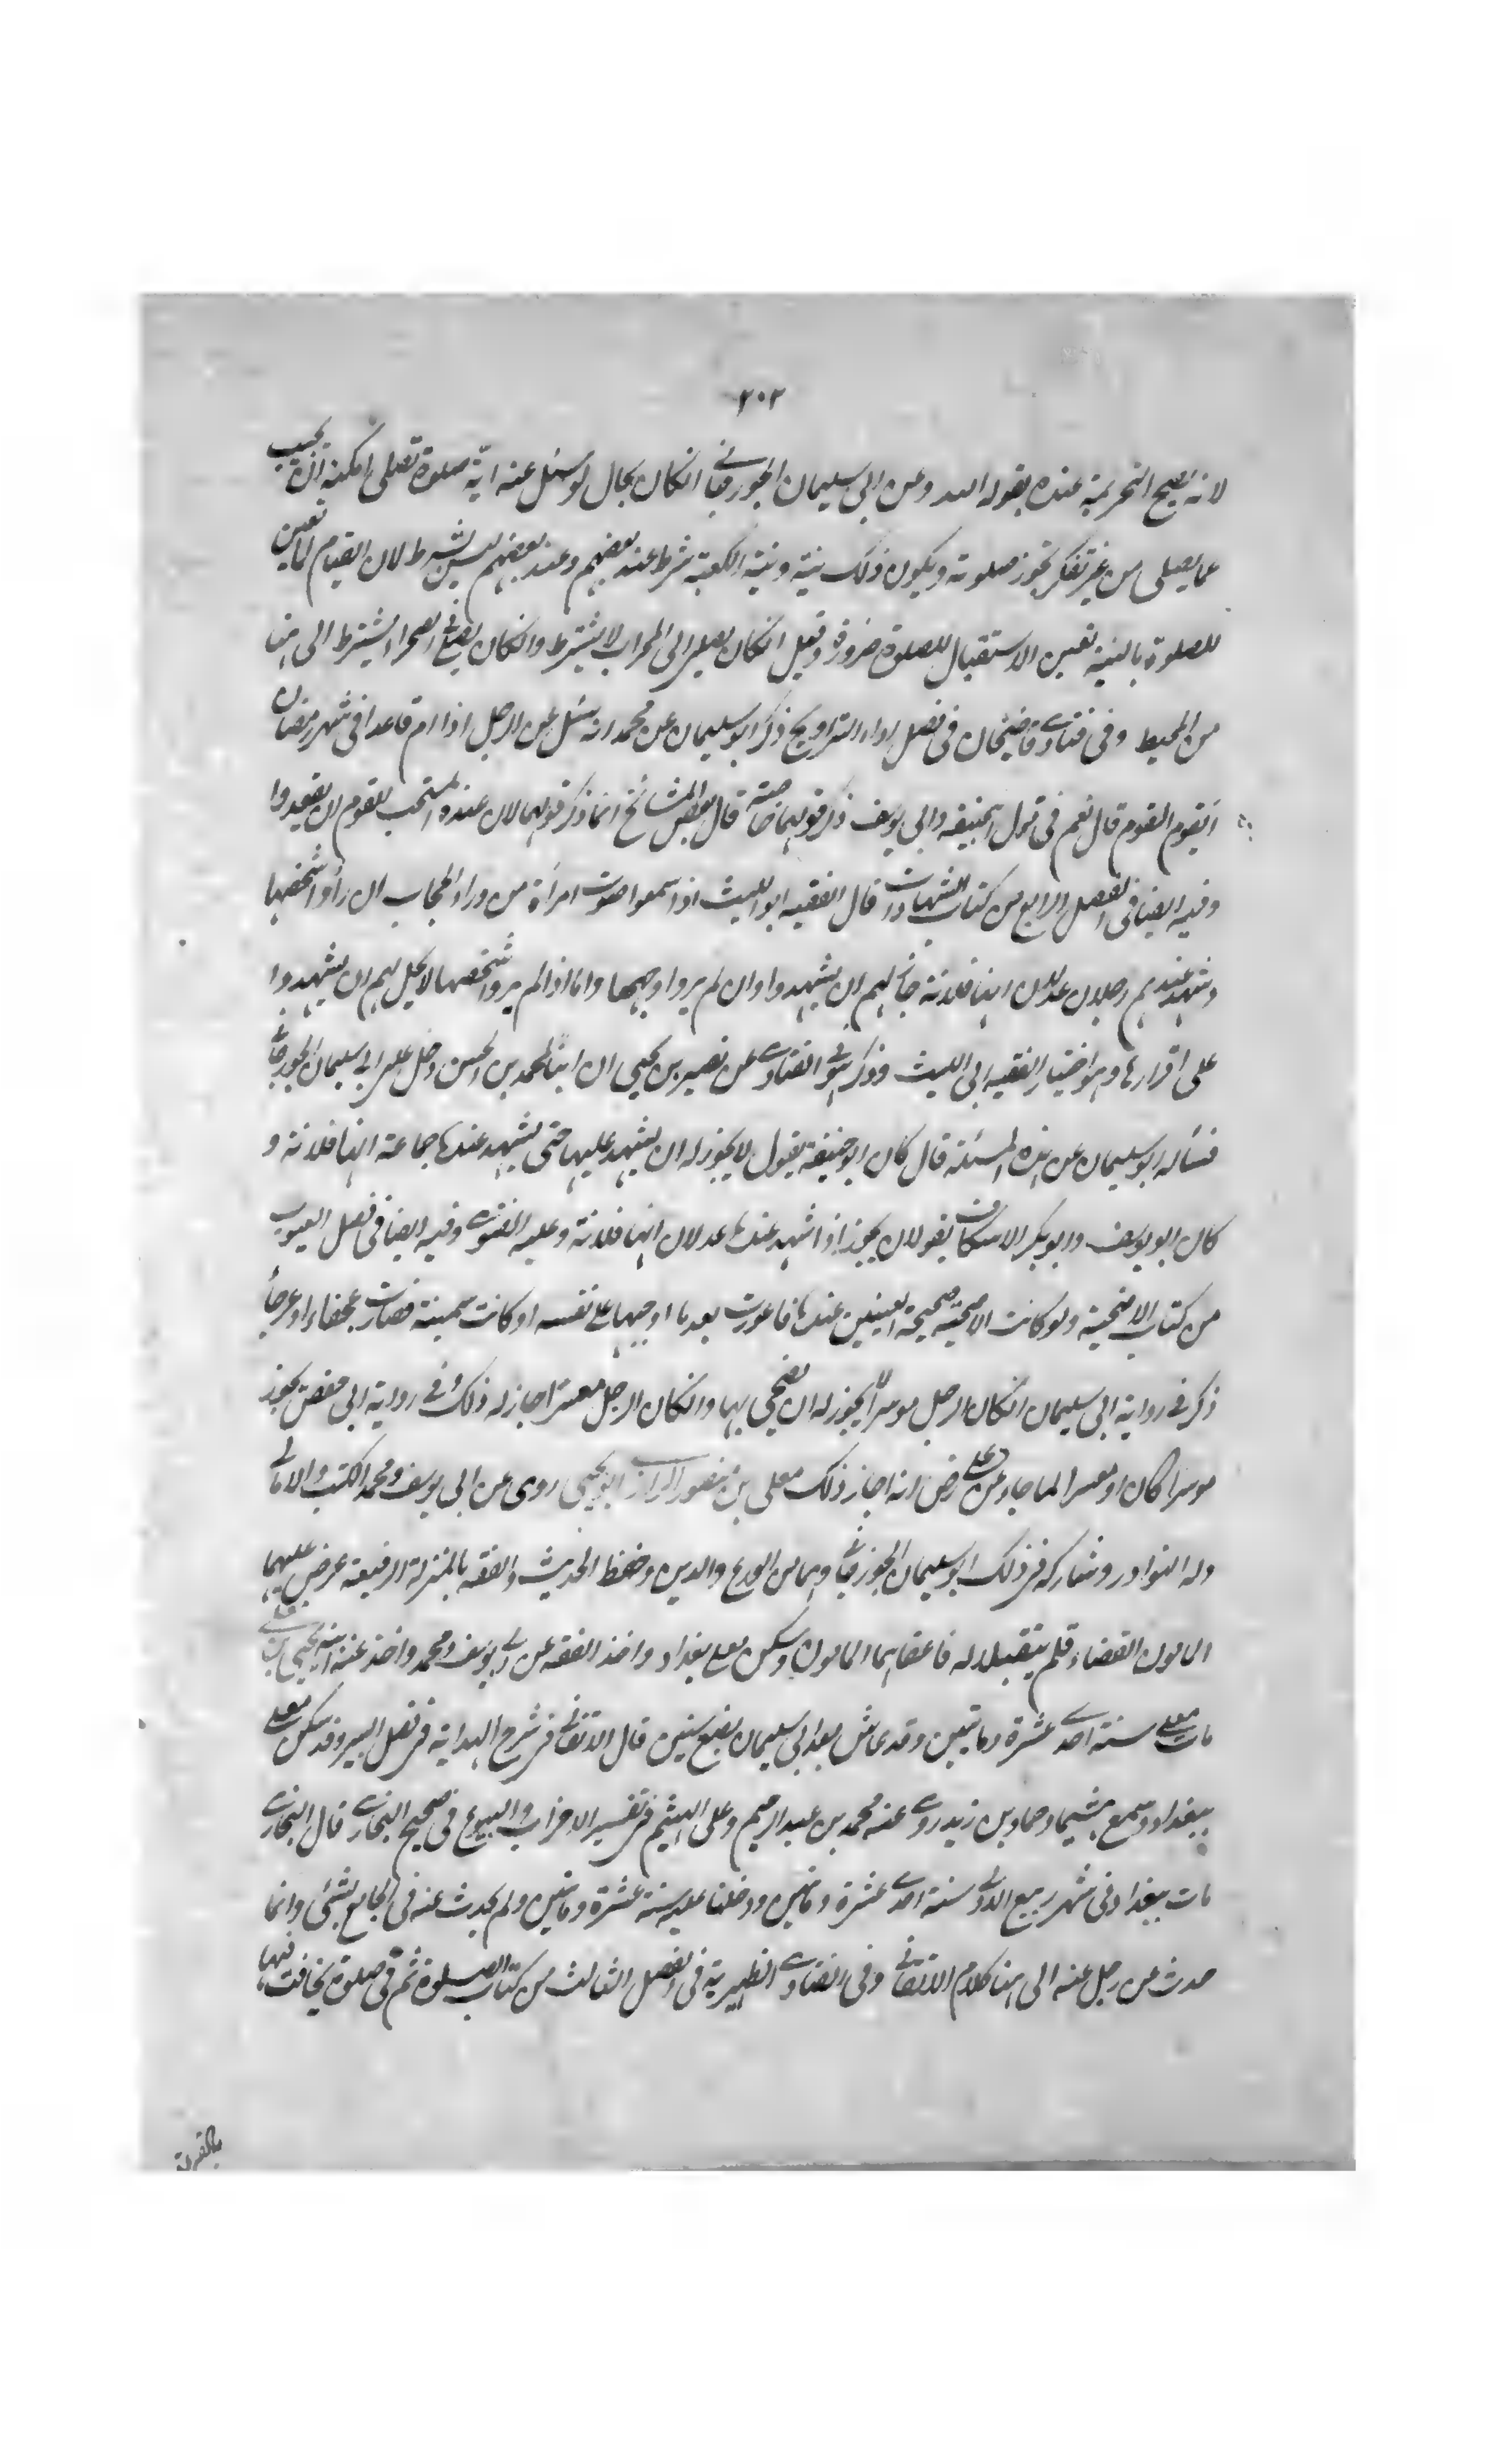 ٢٠٢
لانه يصح التحريمة عنده بقوله الله وعن ابى سليمان الجوزجانى انكان بحال لو سئل عنه اية صلوة تصلى امكنه ان يجيب
عما يصلى من غير تفكر تجوز صلوته ويكون ذلك نية ونية الكعبة شرط عند بعضهم وعند بعضهم ليس بشرط لان القيام لما تعين
للصلوة بالنية تعين الاستقبال للصلوة ضرورة وقيل انكان يصلى الى المحراب لا يشترط وانكان يصلى فى الصحراء يشترط الى هنا
من المحيط وفى فتاوى قاضيخان فى فصل اداء التراويح ذكر ابو سليمان عن محمد انه سئل عن الرجل اذا ام قاعدا فى شهر رمضان
ايقوم القوم قال نعم فى قول ابيحنيفه وابى يوسف ذكر قولهما خاصة قال بعض المشائخ انما ذكر قولهما لان عنده المستحب للقوم ان يقعدوا
وفيه ايضا فى الفصل الرابع من كتاب الشهادات قال الفقيه ابو الليث اذا سمعوا صوت امرأة من وراء الحجاب ان رأوا شخصها
وشهد عندهم رجلان عدلان انها فلانة جاز لهم ان يشهدوا وان لم يروا وجهها واما اذا لم يروا شخصها لا يحل لهم ان يشهدوا
على اقرارها وهو اختيار الفقيه ابى الليث وذكر هو فى الفتاوى عن نصير بن يحيى ان ابنا لمحمد بن الحسن دخل على ابى سليمان الجوزجانى
فسأله ابو سليمان عن هذه المسئلة قال كان ابو حنيفة يقول لا يجوز له ان يشهد عليها حتى يشهد عندها جماعة انها فلانة و
كان ابو يوسف وابو بكر الاسكاف يقولان يجوز اذا شهد عندها عدلان انها فلانة وعليه الفتوى وفيه ايضا فى فصل العيوب
من كتاب الاضحية ولو كانت الاضحية صحيحة العينين عندها فاعورت بعد ما اوجبها على نفسه او كانت سمينة فصارت عجفاء او عرجاء
ذكر فى رواية ابى سليمان انكان الرجل موسرا لا يجوز له ان يضحى بها وانكان الرجل معسرا جاز له ذلك وفى رواية ابى حفص يجوز
موسرا كان او معسرا لما جاء عن على رض انه اجاز ذلك معلى بن منصور الرازى ابو يحيى روى عن ابى يوسف ومحمد الكتب والامالى
وله النوادر وشاركه فى ذلك ابو سليمان الجوزجانى وهما من الورع والدين وحفظ الحديث والفقه بالمنزلة الرفيعة عرض عليهما
المامون القضاء فلم يتقبلا له فاعفاهما المامون وسكن معلى بغداد واخذ الفقه عن ابى يوسف ومحمد واخذ عنه ابنه يحيى
مات معلى سنة احدى عشرة ومايتين وقد عاش بعد ابى سليمان بضع سنين قال الاتقانى فى شرح الهداية فى فصل البير وقد سكن معلى
ببغداد وسمع هشيما وحماد بن زيد روى عنه محمد بن عبد الرحيم وعلى الهيثم فى تفسير الاحزاب والبيوع فى صحيح البخارى قال البخارى
مات ببغداد فى شهر ربيع الاول سنة احدى عشرة ومايتين ودخلنا عليه سنة عشرة ومايتين ولم يحدث عنه فى الجامع بشئ وانما
حدث عن رجل عنه الى هنا كلام الاتقانى وفى الفتاوى الظهيرية فى الفصل الثالث من كتاب الصلوة ثم فى صلوة يخافت فيها
بالقراءة